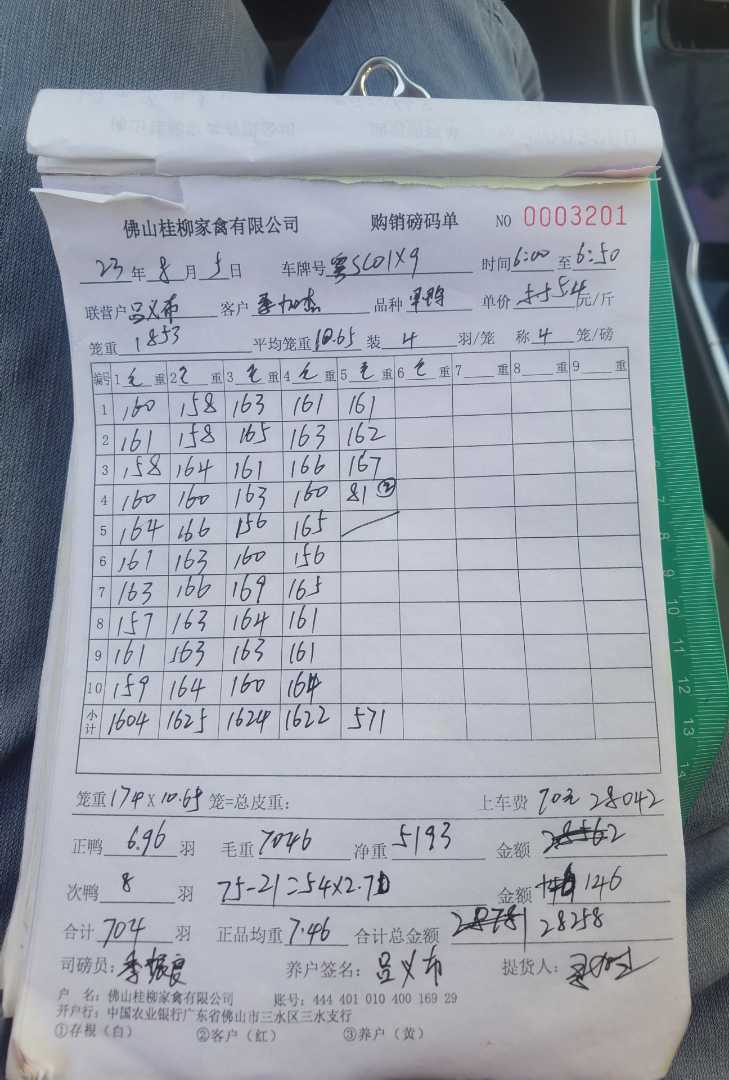 佛山桂柳家禽有限公司 购销磅码单 NO 0003201
23 年 8 月 5 日 车牌号 粤SC01X9 时间 6:00 至 6:50
联营户 吕义布 客户 品种 单价 5.54 元/斤
笼重 1853 平均笼重 10.65 装 4 羽/笼 称 4 笼/磅
编号 1 毛 重 2 毛 重 3 毛 重 4 毛 重 5 毛 重 6 毛 重 7 重 8 重 9 重
1 160 158 163 161 161
2 161 158 165 163 162
3 158 164 161 166 167
4 160 160 163 160 81 ②
5 164 166 156 165
6 161 163 160 156
7 163 166 169 165
8 157 163 164 161
9 161 163 163 161
10 159 164 160 164
小计 1604 1625 1624 1622 571
笼重 174 X 10.65 笼=总皮重: 上车费 70元 28042
正鸭 696 羽 毛重 7046 净重 5193 金额
次鸭 8 羽 75-21=54X2.70 金额 146
合计 704 羽 正品均重 7.46 合计总金额 28258
司磅员: 李振良 养户签名: 吕义布 提货人:
户 名: 佛山桂柳家禽有限公司 账号: 444 401 010 400 169 29
开户行: 中国农业银行广东省佛山市三水区三水支行
①存根(白) ②客户(红) ③养户(黄)